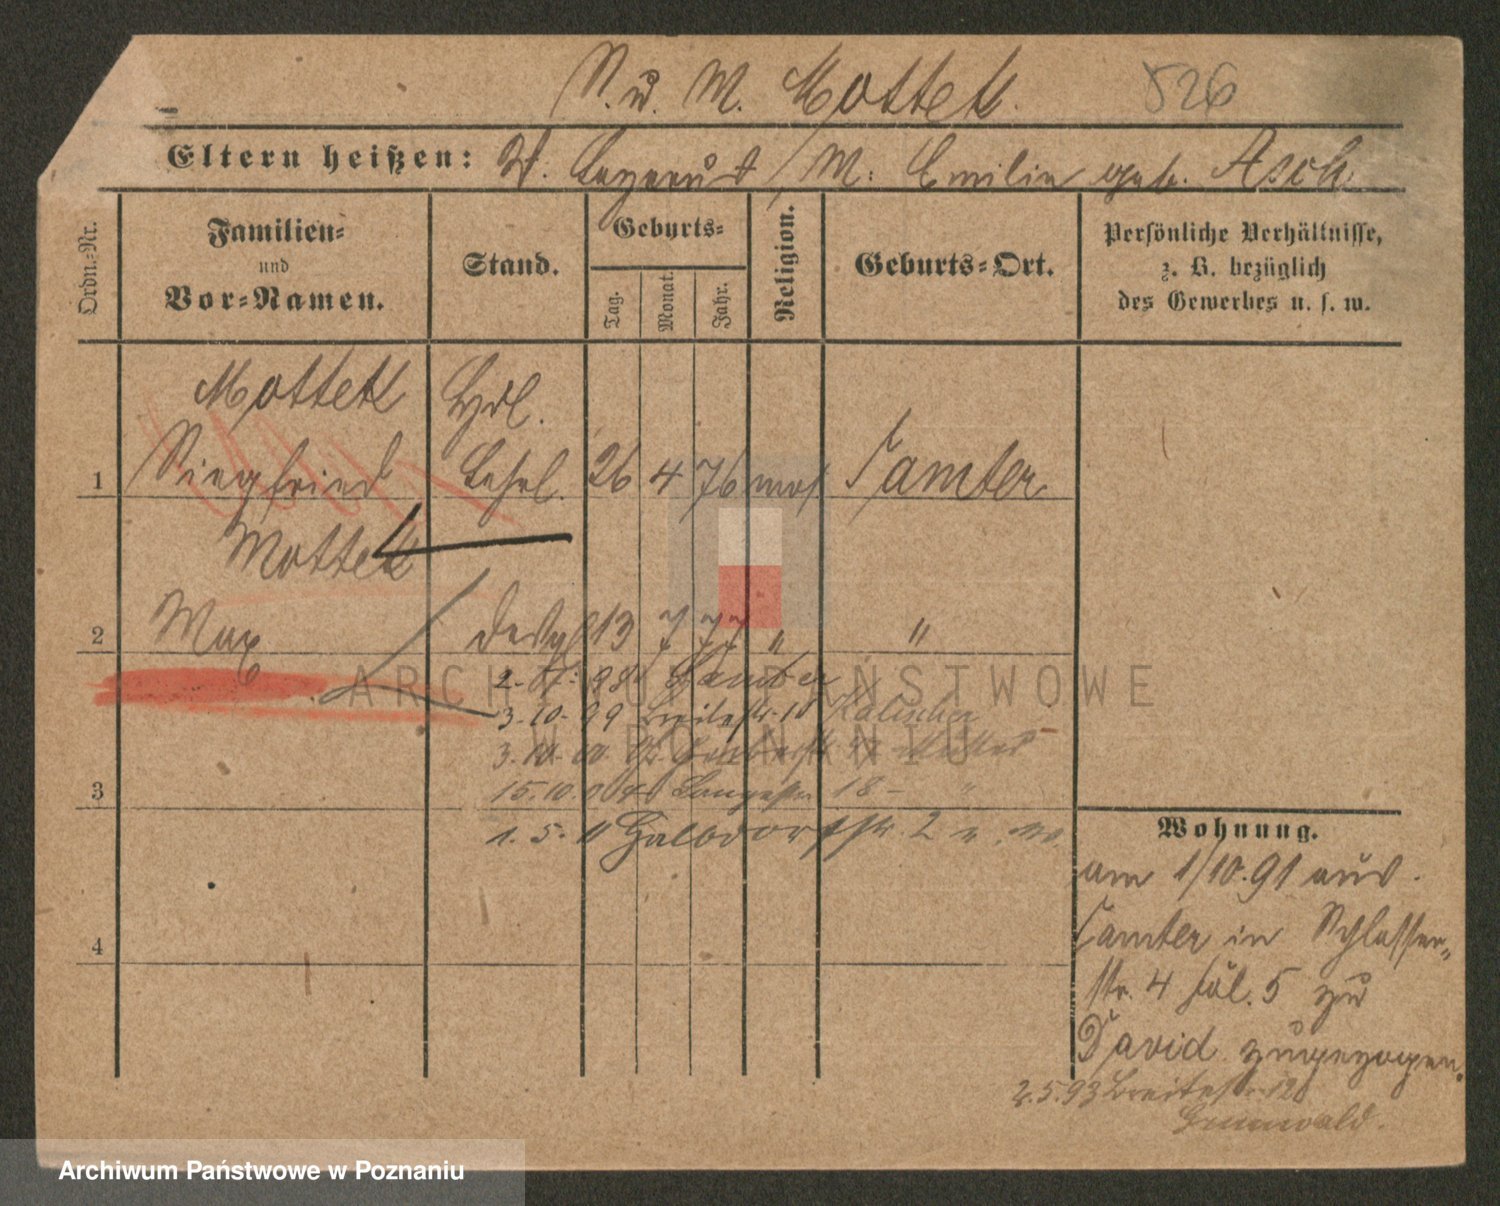 S. u. M. Mottek. 526
Eltern heißen: V. / M: Emilie geb. Asch
Ordn.-Nr.
Familien-
und
Vor-Namen.
Stand.
Geburts-
Tag.
Monat.
Jahr.
Religion.
Geburts-Ort.
Persönliche Verhältnisse,
z. B. bezüglich
des Gewerbes u. s. w.
Mottek Hdl.
1 Siegfried Lehrl. 26 4 76 mos. Samter
Mottek
2 Max desgl. 13 7 77 " "
98 Samter
3.10.99 Breitestr. 18 Kalischer
3.10.00
3 15.10.04 Langestr. 18 - "
1.5.11 Halbdorfstr. 2 u. W.
4
Wohnung.
am 1/10.91 aus
Samter in Schlosser-
str. 4 bei zu
David zugezogen.
2.5.93 Breitestr. 12
Grunwald.
ARCHIWUM PAŃSTWOWE
W POZNANIU
Archiwum Państwowe w Poznaniu